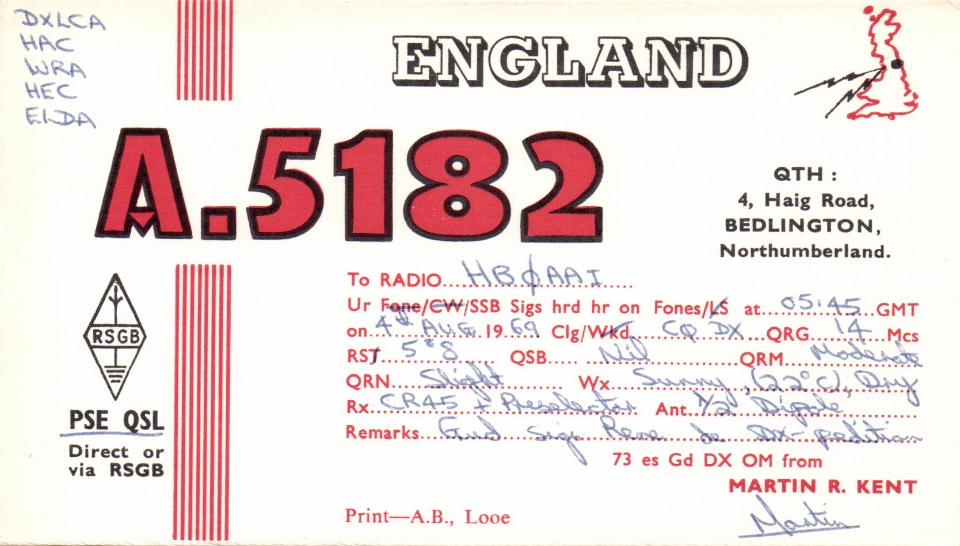 DXLCA
HAC
WRA
HEC
ENGLAND
A.5182
QTH :
4, Haig Road,
BEDLINGTON,
Northumberland.
To RADIO HBØAAI
Ur Fone/CW/SSB Sigs hrd hr on Fones/LS at 05:45 GMT
on 4th AUG 1969 Clg/Wkd CQ DX QRG 14 Mcs
RST 5 8 QSB Nil QRM Moderate
QRN Slight Wx Sunny, (22°C), Dry
Rx CR45 + Preselector Ant. 1/2 Dipole
Remarks Gud sigs Rene de DX-pedition
73 es Gd DX OM from
MARTIN R. KENT
Martin
RSGB
PSE QSL
Direct or
via RSGB
Print—A.B., Looe